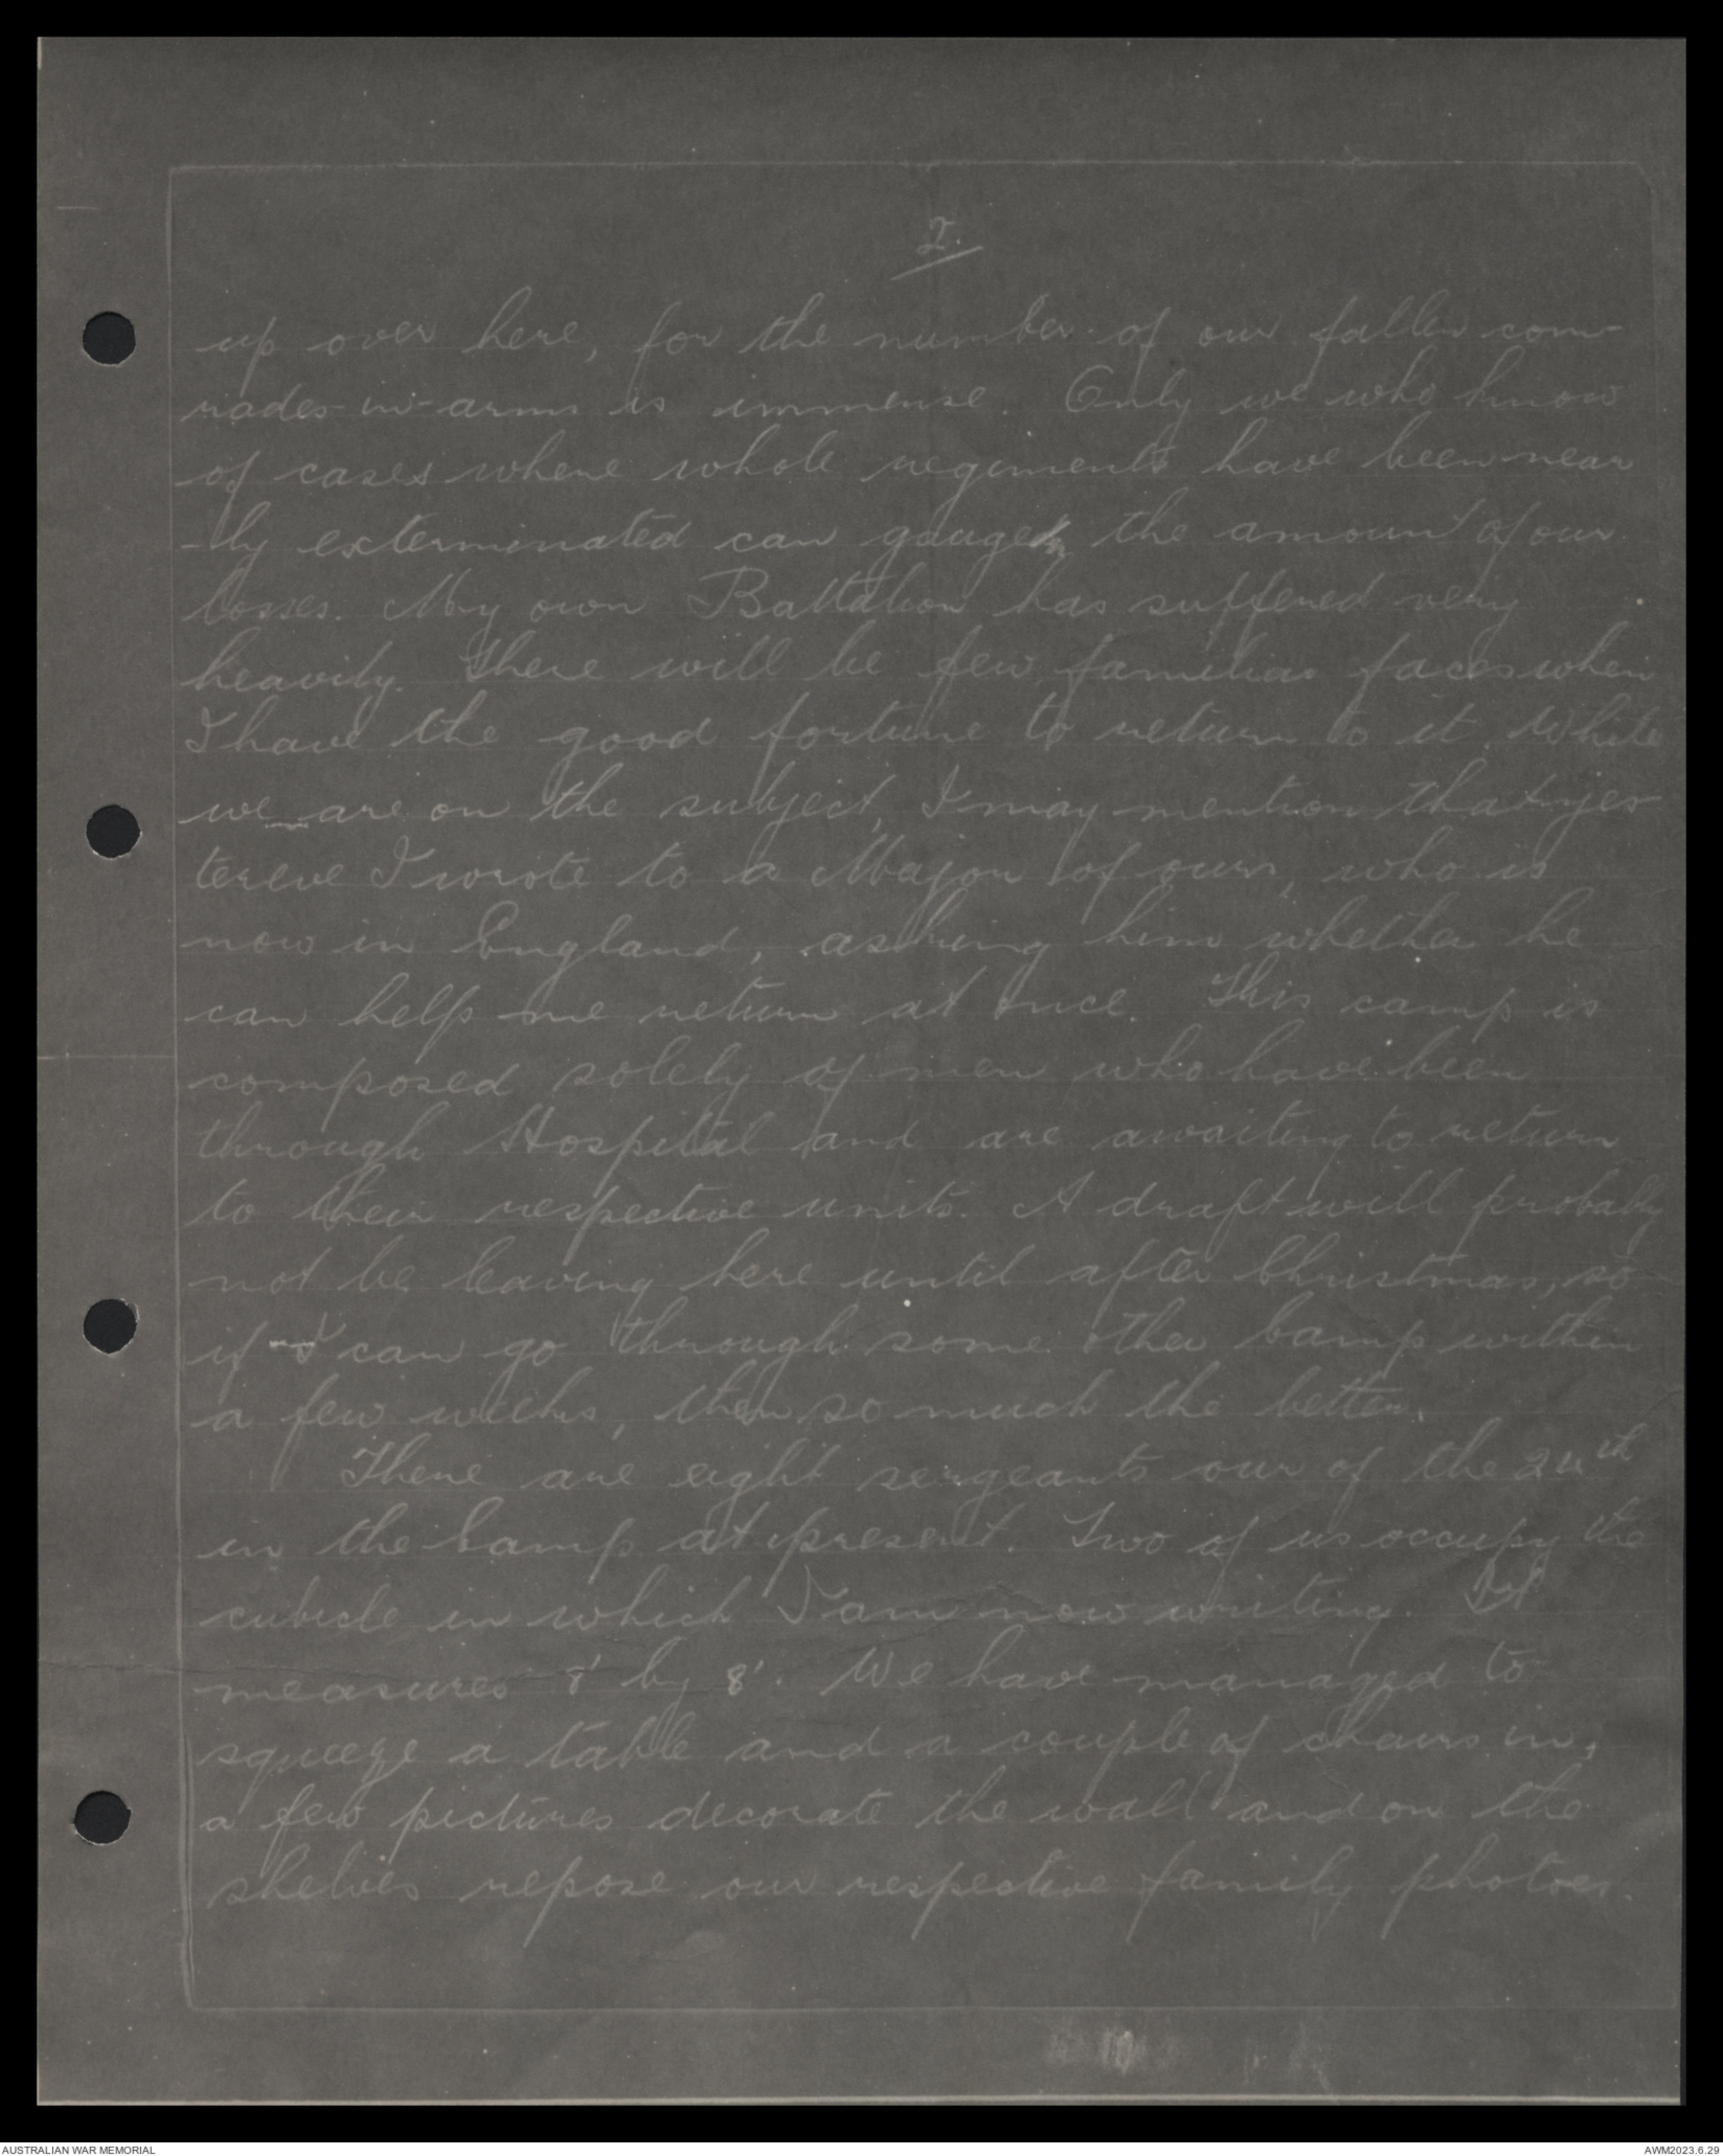 2.
up over here, for the number of our fallen com-
rades-in-arms is immense. Only we who know
of cases where whole regiments have been near
-ly exterminated can gauge the amount of our
losses. My own Battalion has suffered very
heavily. There will be few familiar faces when
I have the good fortune to return to it. While
we are on the subject, I may mention that yes-
tereve I wrote to a Major of ours, who is
now in England, asking him whether he
can help me return at once. This camp is
composed solely of men who have been
through Hospital and are awaiting to return
to their respective units. A draft will probably
not be leaving here until after Christmas, so
if I can go through some other Camp within
a few weeks, then so much the better.
There are eight sergeants our of the 24th
in the Camp at present. Two of us occupy the
cubicle in which I am now writing. It
measures 8' by 8'. We have managed to
squeeze a table and a couple of chairs in,
a few pictures decorate the wall and on the
shelves repose our respective family photoes.
AUSTRALIAN WAR MEMORIAL
AWM2023.6.29